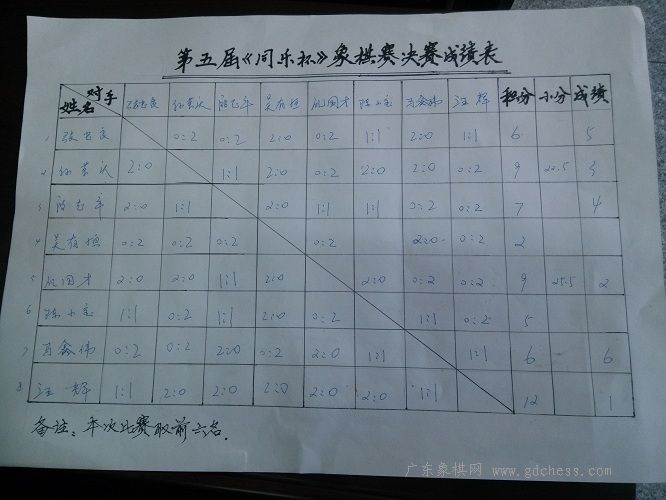 第五届《同乐杯》象棋赛决赛成绩表
对手 姓名 吴有恒 汪辉 积分 小分 成绩
1 0:2 0:2 2:0 0:2 1:1 2:0 1:1 6 5
2 2:0 1:1 2:0 0:2 2:0 2:0 0:2 9 22.5 3
3 2:0 1:1 2:0 1:1 1:1 0:2 0:2 7 4
4 吴有恒 0:2 0:2 0:2 0:2 2:0 0:2 2
5 2:0 2:0 1:1 2:0 2:0 0:2 0:2 9 25.5 2
6 1:1 0:2 1:1 2:0 0:2 1:1 0:2 5
7 0:2 0:2 2:0 0:2 2:0 1:1 1:1 6 6
8 汪辉 1:1 2:0 2:0 2:0 2:0 2:0 1:1 12 1
备注：本次比赛取前六名.
广东象棋网 www.gdchess.com